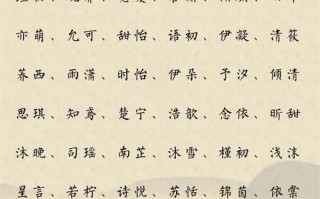 亦萌、允可、甜怡、语初、伊凝、清莜
荞西、雨潇、时怡、伊朵、予汐、倾清
思琪、知鸢、楚宁、浩歆、念依、昕甜
沐晚、司瑶、南芷、沐雪、槿初、浅沫
星言、若柠、诗悦、苏恬、锦茵、依棠